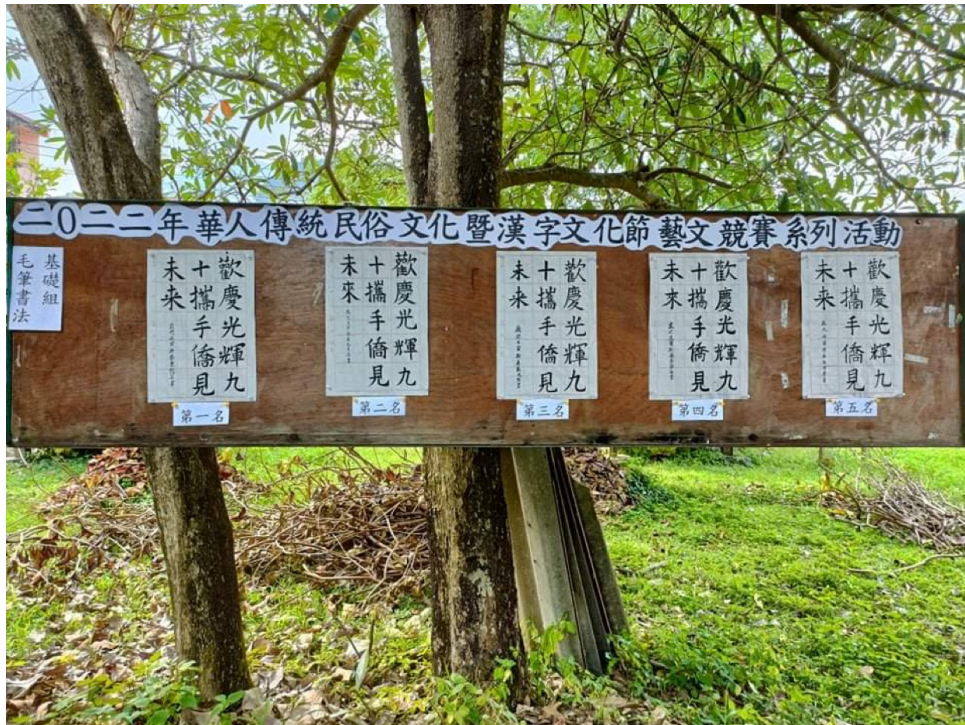 二〇二二年華人傳統民俗文化暨漢字文化節藝文競賽系列活動
基礎組
毛筆書法
歡慶光輝九
十攜手僑見
未来
第一名
歡慶光輝九
十攜手僑見
未來
第二名
歡慶光輝九
十攜手僑見
未来
第三名
歡慶光輝九
十攜手僑見
未來
第四名
歡慶光輝九
十攜手僑見
未来
第五名